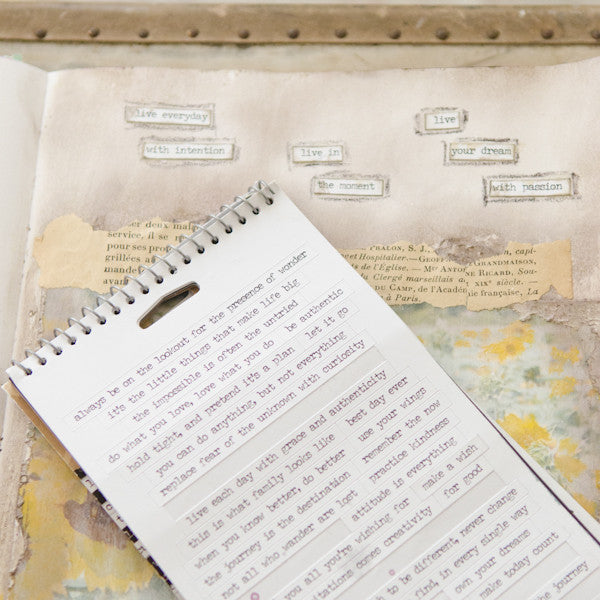 live everyday
with intention
live in
the moment
live
your dream
with passion
deux mal
service, il se
pour ses pro
grillées a
mande
avan
PRALON, S. J.,
et Hospitalier.—GEOFF GRANDMAISON, capi-
ts de l'Église. — Mgr ANTOINE RICARD, Sou-
du Clergé marseillais au XIXe siècle. —
DU CAMP, de l'Acadé française, La
à Paris
always be on the lookout for the presence of wonder
it's the little things that make life big
the impossible is often the untried
do what you love, love what you do be authentic
hold tight, and pretend it's a plan let it go
you can do anything, but not everything
replace fear of the unknown with curiosity
live each day with grace and authenticity
this is what family looks like best day ever
when you know better, do better use your wings
the journey is the destination remember the now
not all who wander are lost practice kindness
attitude is everything
you all you're wishing for make a wish
itations comes creativity for good
h to be different, never change
find, in every single way
own your dreams
make today count
the journey